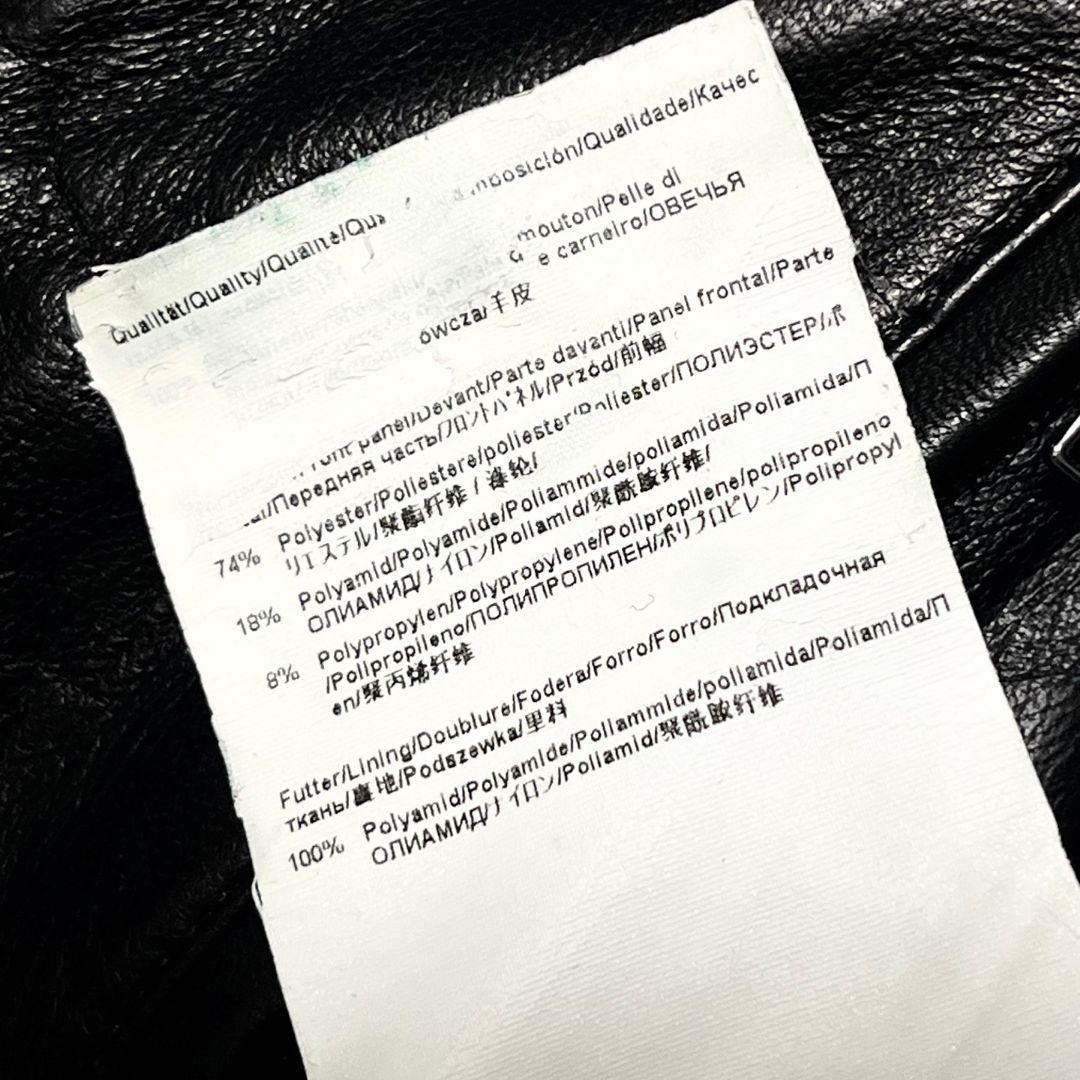 Qualität/Quality/Qualité/Qua mposición/Qualidade/Качес
mouton/Pelle di
e carneiro/ОВЕЧЬЯ
owcza/羊皮
ront panel/Devant/Parte davanti/Panel frontal/Parte
al/Передняя часть/フロントパネル/Przód/前幅
74% Polyester/Poliestere/poliester/Poliester/ПОЛИЭСТЕР/ポ
リエステル/聚酯纤维 / 涤纶/
18% Polyamid/Polyamide/Poliammide/poliamida/Poliamida/П
ОЛИАМИД/ナイロン/Poliamid/聚酰胺纤维/
8% Polypropylen/Polypropylene/Polipropilene/polipropileno
/Polipropileno/ПОЛИПРОПИЛЕН/ポリプロピレン/Polipropyl
en/聚丙烯纤维
Futter/Lining/Doublure/Fodera/Forro/Forro/Подкладочная
ткань/裏地/Podszewka/里料
100% Polyamid/Polyamide/Poliammide/poliamida/Poliamida/П
ОЛИАМИД/ナイロン/Poliamid/聚酰胺纤维